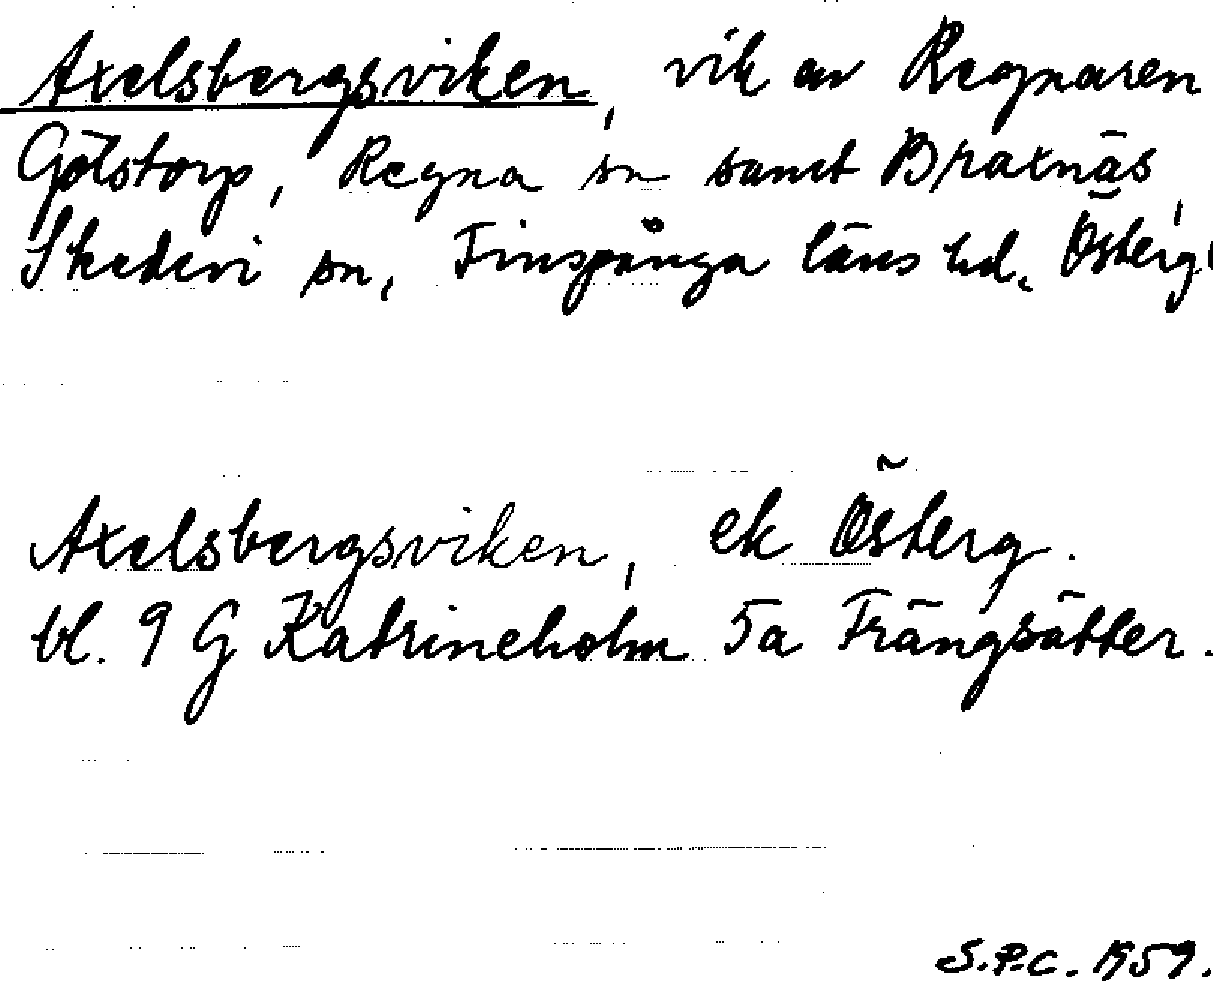 Axelsbergsviken, vik av Regnaren
Götstorp, Regna sn samt Braxnäs,
Skedevi sn, Finspånga läns hd. Österg
Axelsbergsviken, ek Österg.
bl. 9 G Katrineholm 5a Trängsätter.
S.P.C. 1959.